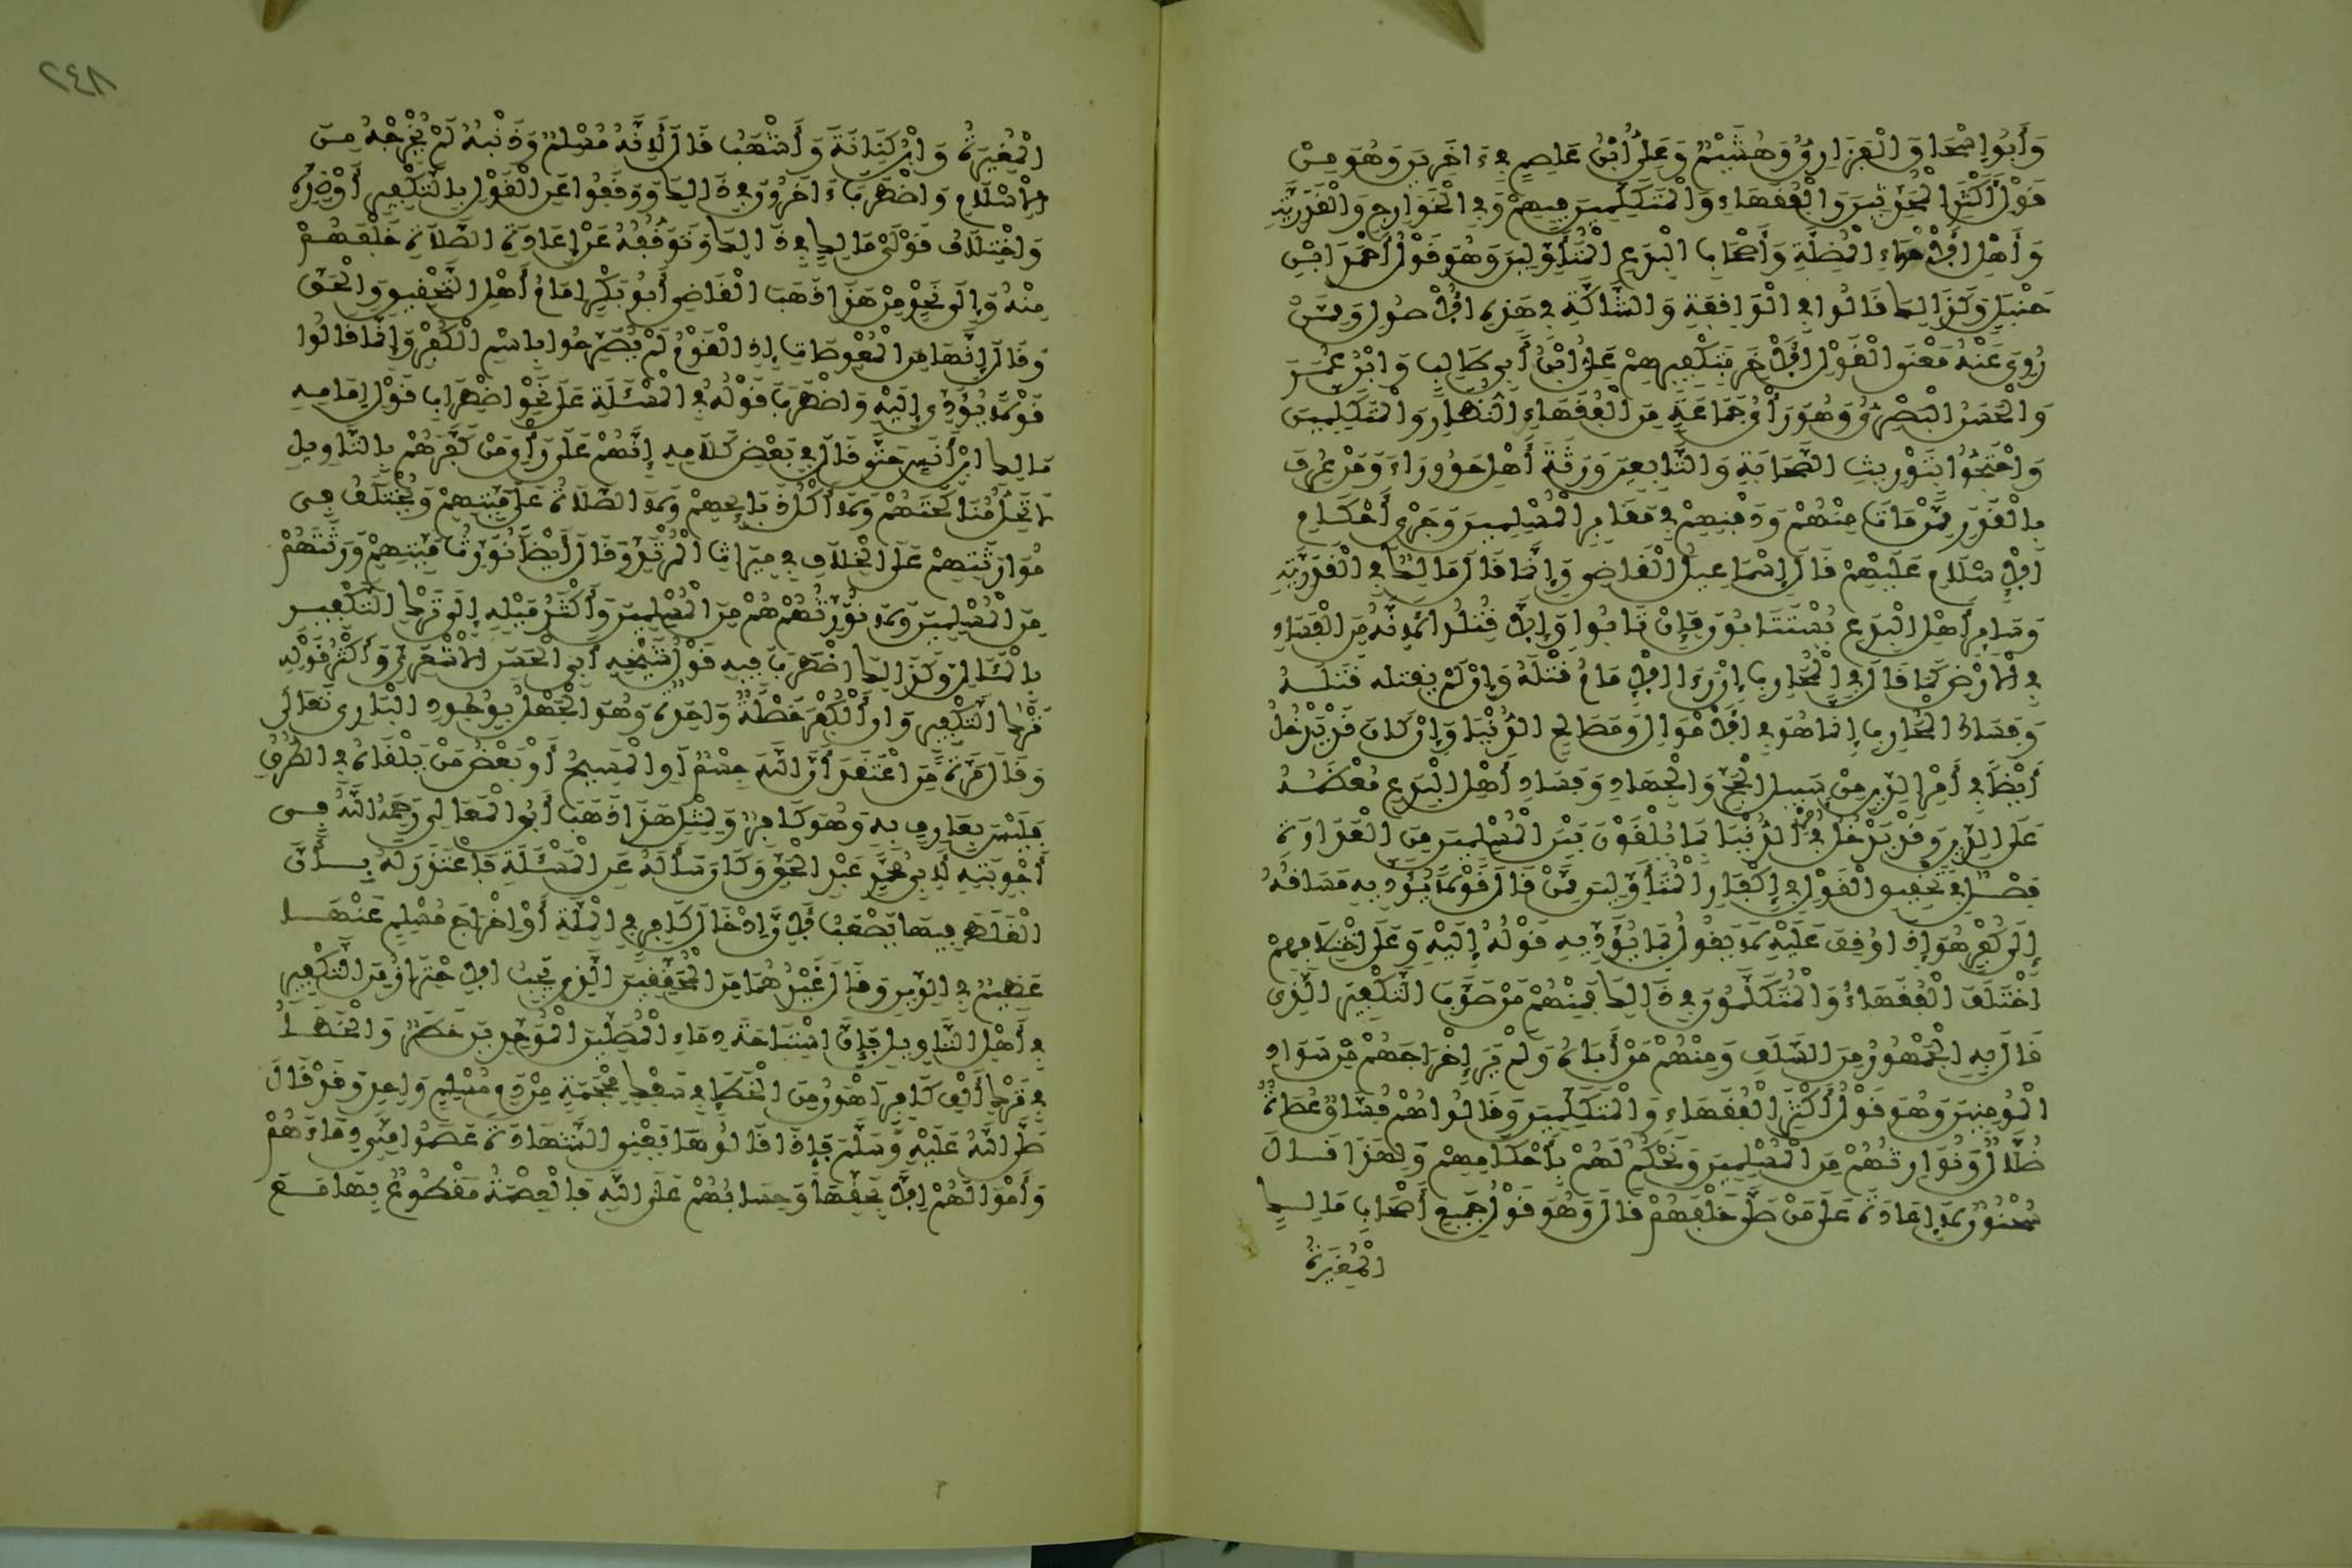 وَأَبُو إِسْحَاقَ الْفَزَارِيُّ وَهُشَيْمٌ وَعَلِيُّ ابْنُ عَاصِمٍ فِي ءَاخَرِينَ وَهُوَ مِنْ
قَوْلِ أَكْثَرِ الْمُحَدِّثِينَ وَالْفُقَهَاءِ وَالْمُتَكَلِّمِينَ فِيهِمْ وَفِي الْخَوَارِجِ وَالْقَدَرِيَّةِ
وَأَهْلِ الْأَهْوَاءِ الْمُضِلَّةِ وَأَصْحَابِ الْبِدَعِ الْمُتَأَوِّلِينَ وَهُوَ قَوْلُ أَحْمَدَ ابْنِ
حَنْبَلٍ وَكَذَالِكَ قَالُوا فِي الْوَاقِفَةِ وَالشَّاكَّةِ فِي هَذِهِ الْأُصُولِ وَمِمَّنْ
رُوِيَ عَنْهُ مَعْنَى الْقَوْلِ الْأَخَرِ بِتَكْفِيرِهِمْ عَلِيُّ ابْنُ أَبِي طَالِبٍ وَابْنُ عُمَرَ
وَالْحَسَنُ الْبَصْرِيُّ وَهُوَ رَأْيُ جَمَاعَةٍ مِنَ الْفُقَهَاءِ النُّظَّارِ وَالْمُتَكَلِّمِينَ
وَاحْتَجُّوا بِتَوْرِيثِ الصَّحَابَةِ وَالتَّابِعِينَ وَرَثَةَ أَهْلِ حَرُورَاءَ وَمَنْ عُرِفَ
بِالْقَدَرِ مِمَّنْ مَاتَ مِنْهُمْ وَدَفْنِهِمْ فِي مَقَابِرِ الْمُسْلِمِينَ وَجَرْيِ أَحْكَامِ
الْإِسْلَامِ عَلَيْهِمْ قَالَ إِسْمَاعِيلُ الْقَاضِي وَإِنَّمَا قَالَ مَالِكٌ فِي الْقَدَرِيَّةِ
وَسَايِرِ أَهْلِ الْبِدَعِ يُسْتَتَابُونَ فَإِنْ تَابُوا وَإِلَّا قُتِلُوا لِأَنَّهُ مِنَ الْفَسَادِ
فِي الْأَرْضِ كَمَا قَالَ فِي الْمُحَارِبِ إِنْ رَءَا الْإِمَامُ قَتْلَهُ وَإِنْ لَمْ يَقْتُلْ قَتَلَهُ
وَفَسَادُ الْمُحَارِبِ إِنَّمَا هُوَ فِي الْأَمْوَالِ وَمَصَالِحِ الدُّنْيَا وَإِنْ كَانَ قَدْ يَدْخُلُ
أَيْضًا فِي أَمْرِ الدِّينِ مِنْ سَبِيلِ الْحَجِّ وَالْجِهَادِ وَفَسَادُ أَهْلِ الْبِدَعِ مُعْظَمُهُ
عَلَى الدِّينِ وَقَدْ يَدْخُلُ فِي أَمْرِ الدُّنْيَا بِمَا يُلْقُونَ بَيْنَ الْمُسْلِمِينَ مِنَ الْعَدَاوَةِ
فَصْلٌ فِي تَحْقِيقِ الْقَوْلِ فِي إِكْفَارِ الْمُتَأَوِّلِينَ مِمَّنْ قَالَ قَوْلًا يُؤَدِّيهِ مَسَاقُهُ
إِلَى كُفْرٍ هُوَ إِذَا وُقِفَ عَلَيْهِ لَا يَقُولُ بِمَا يُؤَدِّيهِ قَوْلُهُ إِلَيْهِ وَعَلَى اخْتِلَافِهِمْ
اخْتَلَفَ الْفُقَهَاءُ وَالْمُتَكَلِّمُونَ فِي ذَالِكَ فَمِنْهُمْ مَنْ صَوَّبَ التَّكْفِيرَ الَّذِي
قَالَ بِهِ الْجُمْهُورُ مِنَ السَّلَفِ وَمِنْهُمْ مَنْ أَبَاهُ وَلَمْ يَرَ إِخْرَاجَهُمْ مِنْ سَوَادِ
الْمُومِنِينَ وَهُوَ قَوْلُ أَكْثَرِ الْفُقَهَاءِ وَالْمُتَكَلِّمِينَ وَقَالُوا هُمْ فُسَّاقٌ عُصَاةٌ
ضُلَّالٌ وَنُوَارِثُهُمْ مِنَ الْمُسْلِمِينَ وَنَحْكُمُ لَهُمْ بِأَحْكَامِهِمْ وَلِهَذَا قَالَ
سُحْنُونٌ لَا إِعَادَةَ عَلَى مَنْ صَلَّى خَلْفَهُمْ قَالَ وَهُوَ قَوْلُ جَمِيعِ أَصْحَابِ مَالِكٍ
الْمُغِيرَةُ
٢٤٨
الْمُغِيرَةُ وَابْنُ كِنَانَةَ وَأَشْهَبُ قَالَ لِأَنَّهُ مُسْلِمٌ وَذَنْبُهُ لَمْ يُخْرِجْهُ مِنَ
الْإِسْلَامِ وَاضْطَرَبَ ءَاخَرُونَ فِي ذَالِكَ وَوَقَفُوا عَنِ الْقَوْلِ بِالتَّكْفِيرِ أَوْ ضِدِّهِ
وَاخْتِلَافُ قَوْلَيْ مَالِكٍ فِي ذَالِكَ وَتَوَقُّفُهُ عَنْ إِعَادَةِ الصَّلَاةِ خَلْفَهُمْ
مِنْهُ وَإِلَى نَحْوٍ مِنْ هَذَا ذَهَبَ الْقَاضِي أَبُو بَكْرٍ إِمَامُ أَهْلِ التَّحْقِيقِ وَالْحَقِّ
وَقَالَ إِنَّهَا مِنَ الْمُعْوِصَاتِ إِذِ الْقَوْمُ لَمْ يُصَرِّحُوا بِاسْمِ الْكُفْرِ وَإِنَّمَا قَالُوا
قَوْلًا يُؤَدِّي إِلَيْهِ وَاضْطَرَبَ قَوْلُهُ فِي الْمَسْأَلَةِ عَلَى نَحْوِ اضْطِرَابِ قَوْلِ إِمَامِهِ
مَالِكِ ابْنِ أَنَسٍ حَتَّى قَالَ فِي بَعْضِ كَلَامِهِ إِنَّهُمْ عَلَى رَأْيِ مَنْ كَفَّرَهُمْ بِالتَّاوِيلِ
لَا تَحِلُّ مُنَاكَحَتُهُمْ وَلَا أَكْلُ ذَبَائِحِهِمْ وَلَا الصَّلَاةُ عَلَى مَيِّتِهِمْ وَيُخْتَلَفُ فِي
مُوَارَثَتِهِمْ عَلَى الْخِلَافِ فِي مِيرَاثِ الْمُرْتَدِّ وَقَالَ أَيْضًا نُوَرِّثُ مَيِّتَهُمْ وَرَثَتَهُمْ
مِنَ الْمُسْلِمِينَ وَلَا نُوَرِّثُهُمْ هُمْ مِنَ الْمُسْلِمِينَ وَأَكْثَرُ مَيْلِهِ إِلَى تَرْكِ التَّكْفِيرِ
بِالْمَئَالِ وَكَذَالِكَ اضْطَرَبَ فِيهِ قَوْلُ شَيْخِهِ أَبِي الْحَسَنِ الْأَشْعَرِيِّ وَأَكْثَرُ قَوْلِهِ
تَرْكُ التَّكْفِيرِ وَأَنَّ الْكُفْرَ خَصْلَةٌ وَاحِدَةٌ وَهُوَ الْجَهْلُ بِوُجُودِ الْبَارِي تَعَالَى
وَقَالَ مَرَّةً مَنِ اعْتَقَدَ أَنَّ اللَّهَ جِسْمٌ أَوِ الْمَسِيحُ أَوْ بَعْضُ مَنْ يَلْقَاهُ فِي الطُّرُقِ
فَلَيْسَ بِعَارِفٍ بِهِ وَهُوَ كَافِرٌ وَلِمِثْلِ هَذَا ذَهَبَ أَبُو الْمَعَالِي رَحِمَهُ اللَّهُ فِي
أَجْوِبَتِهِ لِأَبِي مُحَمَّدٍ عَبْدِ الْحَقِّ وَكَانَ سَأَلَهُ عَنِ الْمَسْئَلَةِ فَاعْتَذَرَ لَهُ بِأَنَّ
الْغَلَطَ فِيهَا يَصْعُبُ لِأَنَّ إِدْخَالَ كَافِرٍ فِي الْمِلَّةِ أَوْ إِخْرَاجَ مُسْلِمٍ عَنْهَا
عَظِيمٌ فِي الدِّينِ وَقَالَ غَيْرُهُمَا مِنَ الْمُحَقِّقِينَ الَّذِي يَجِبُ الِاحْتِرَازُ مِنَ التَّكْفِيرِ
فِي أَهْلِ التَّاوِيلِ فَإِنَّ اسْتِبَاحَةَ دِمَاءِ الْمُصَلِّينَ الْمُوَحِّدِينَ خَطَرٌ وَالْخَطَأُ
فِي تَرْكِ أَلْفِ كَافِرٍ أَهْوَنُ مِنَ الْخَطَإِ فِي سَفْكِ مِحْجَمَةٍ مِنْ دَمِ مُسْلِمٍ وَاحِدٍ وَقَدْ قَالَ
صَلَّى اللَّهُ عَلَيْهِ وَسَلَّمَ فَإِذَا قَالُوهَا يَعْنِي الشَّهَادَةَ عَصَمُوا مِنِّي دِمَاءَهُمْ
وَأَمْوَالَهُمْ إِلَّا بِحَقِّهَا وَحِسَابُهُمْ عَلَى اللَّهِ فَالْعِصْمَةُ مَقْطُوعٌ بِهَا مَعَ